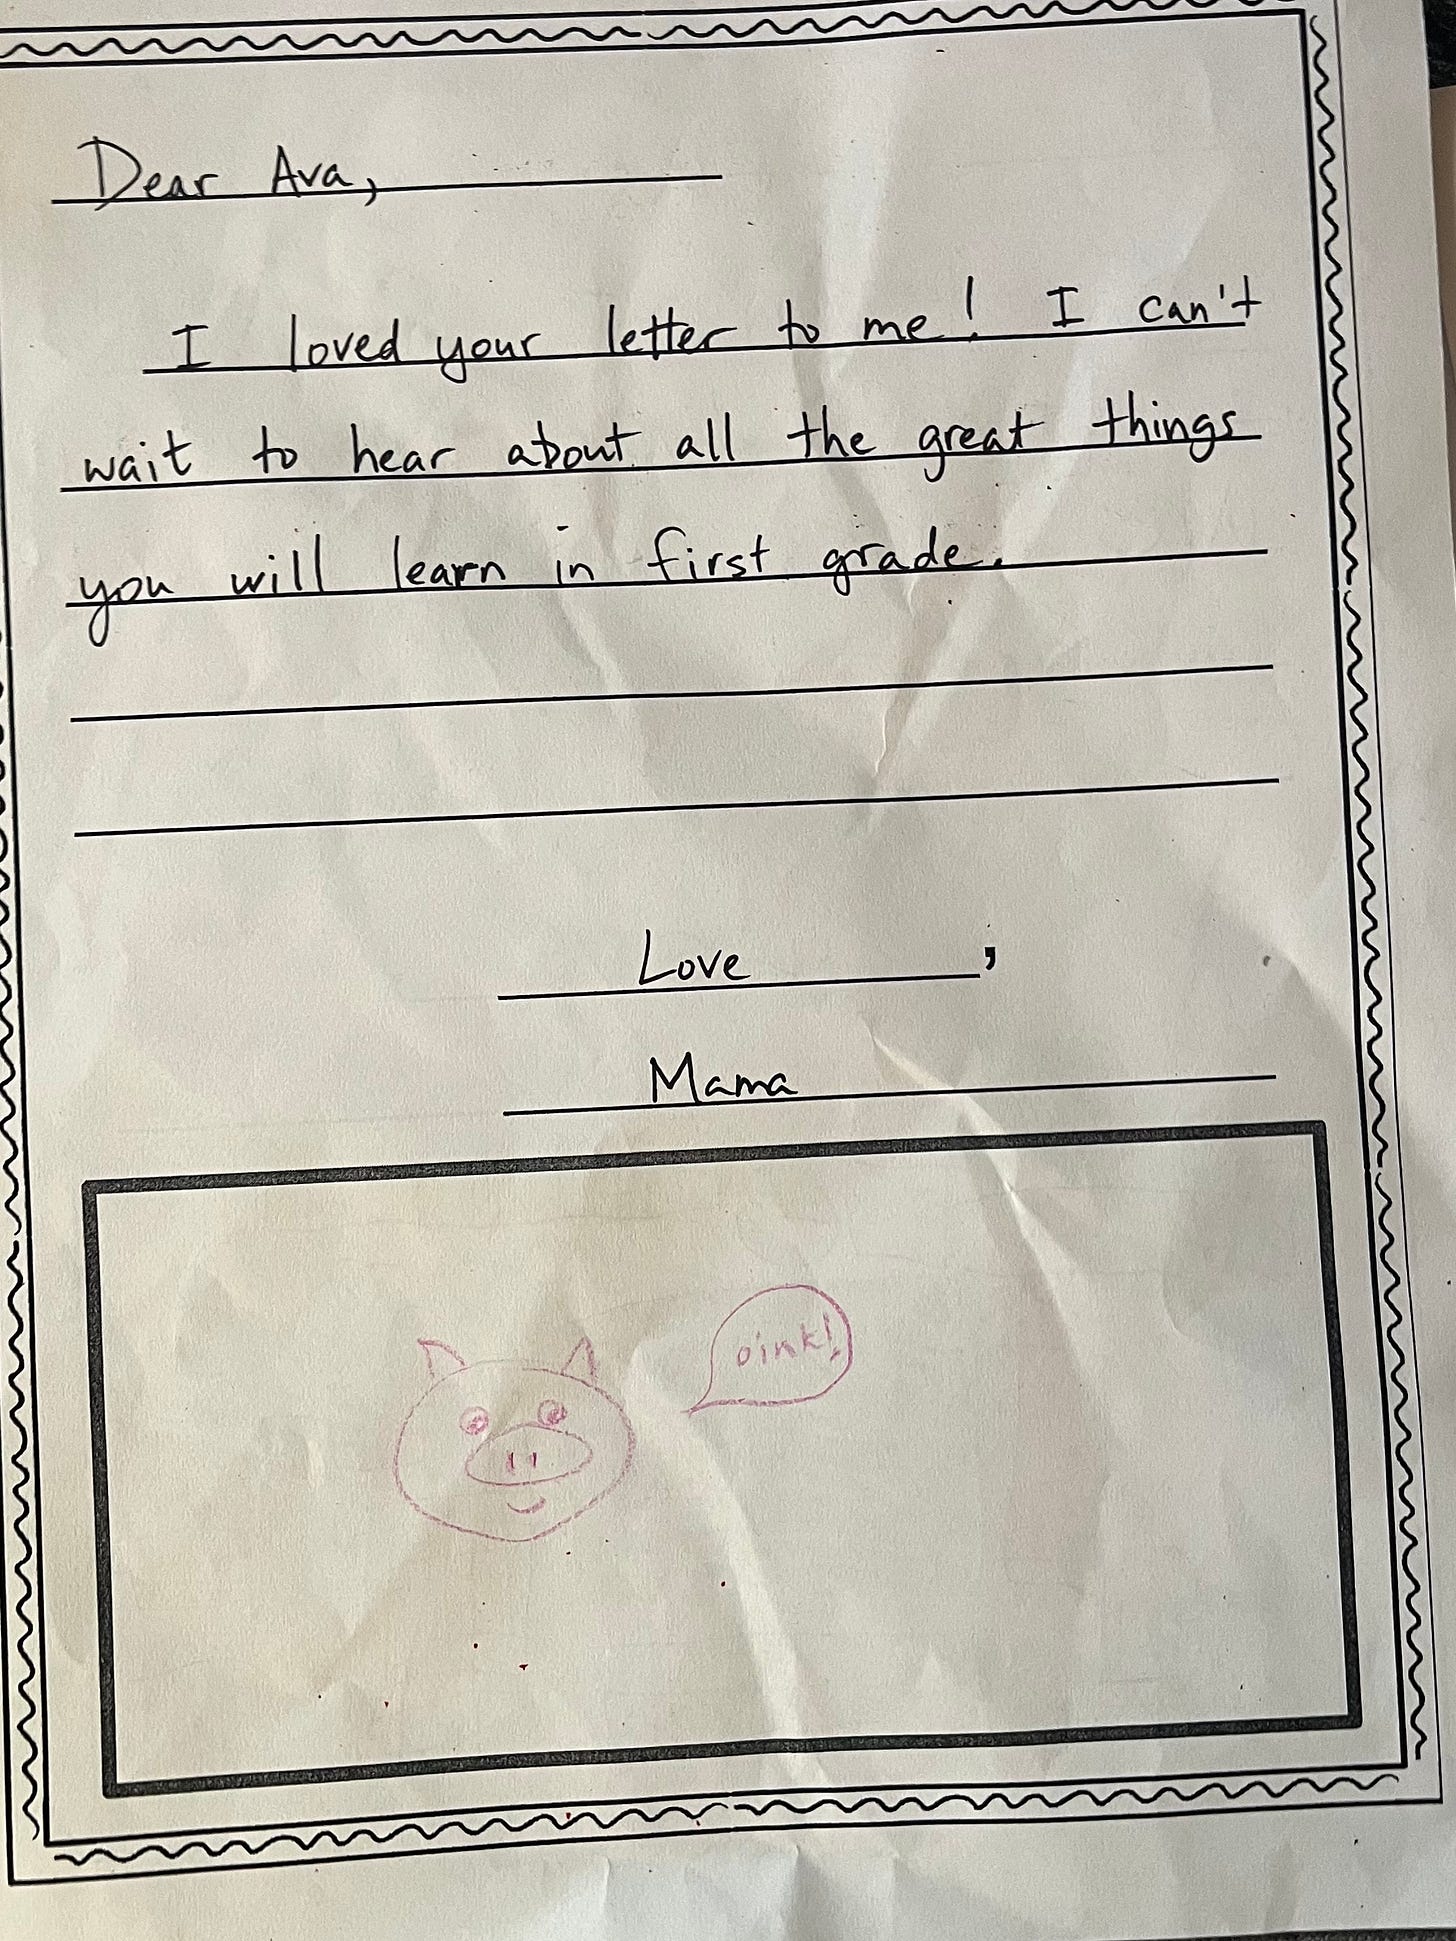 Dear Ava,
I loved your letter to me! I can't
wait to hear about all the great things
you will learn in first grade.
Love ,
Mama
oink!